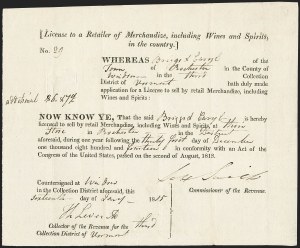 [License to a Retailer of Merchandize, including Wines and Spirits,
in the country.]
No. 20
WHEREAS Briggs &
Town of Rochester in the County of
Windsor in the Third Collection
District of Vermont hath duly made
application for a License to sell by retail Merchandize, including Wines and
Spirits:
NOW KNOW YE, That the said Briggs &
licensed to sell by retail Merchandize, including Wines and Spirits, at their
Store in Rochester in the District
aforesaid, during one year following the thirty first day of December
one thousand eight hundred and fourteen in conformity with an Act of the
Congress of the United States, passed on the second of August, 1813.
Commissioner of the Revenue.
Countersigned at Windsor
in the Collection District aforesaid, this
day of 1815
Collector of the Revenue for the third
Collection District of Vermont